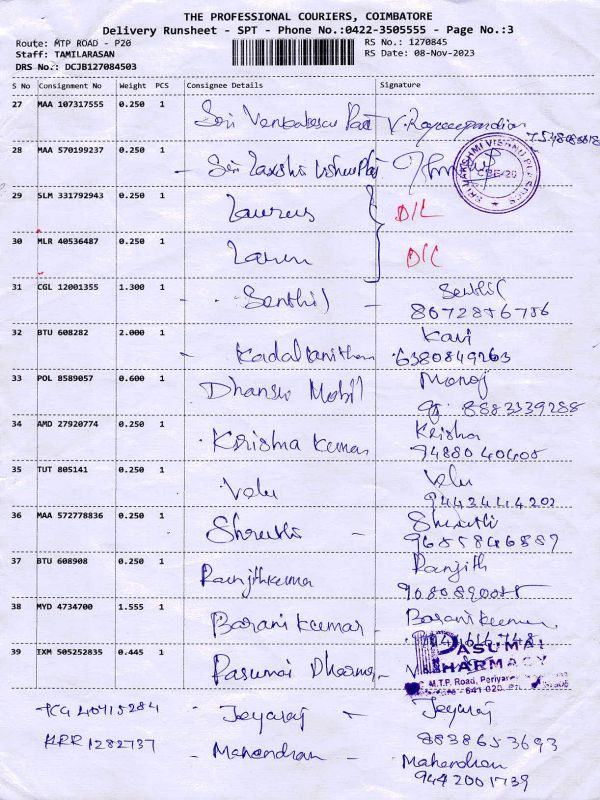 THE PROFESSIONAL COURIERS, COIMBATORE
Delivery Runsheet - SPT - Phone No.:0422-3505555 - Page No.:3
Route: MTP ROAD - P20 RS No.: 1270845
Staff: TAMILARASAN RS Date: 08-Nov-2023
DRS No.: DCJB127084503
S No Consignment No Weight PCS Consignee Details Signature
27 MAA 107317555 0.250 1 Sri
28 MAA 570199237 0.250 1 Sri
SRI LAKSHMI VISHNU
CBE-29
29 SLM 331792943 0.250 1 Laurus D/L
30 MLR 40536487 0.250 1 D/L
31 CGL 12001355 1.300 1 Senthil - Senthil
8072856756
32 BTU 608282 2.000 1 - Kavi
6380849263
33 POL 8589057 0.600 1 Manoj
8883339288
34 AMD 27920774 0.250 1 Krishna Kumar Krishna
35 TUT 805141 0.250 1 Velu Velu
36 MAA 572778836 0.250 1 Shruthi - Shruthi
9655846557
37 BTU 608908 0.250 1 Ranjithkumar Ranjith
38 MYD 4734700 1.555 1 Barani Kumar Barani Kumar
39 IXM 505252835 0.445 1 Pasumai
PASUMAI
PHARMACY
M.T.P. Road,
641 020
TCG 40415284 - Jeyaraj - Jeyaraj
8838653693
KRR 1282737 - Mahendran - Mahendran
9442001739